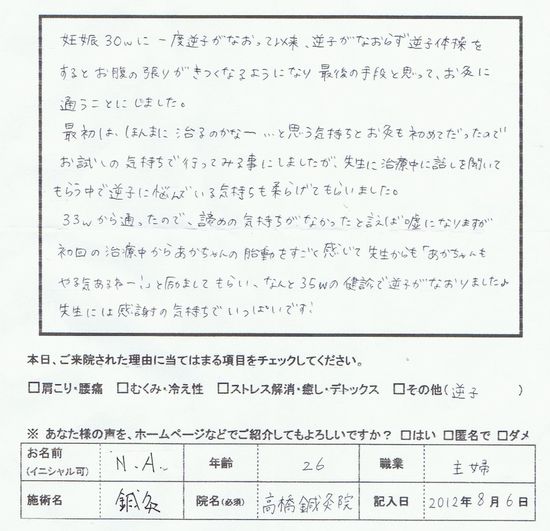 妊娠30wに一度逆子がなおって以来、逆子がなおらず逆子体操を
するとお腹の張りがきつくなるようになり最後の手段と思って、お灸に
通うことにしました。
最初は、ほんまに治るのかなー…と思う気持ちとお灸も初めてだったので
お試しの気持ちで行ってみる事にしましたが、先生に治療中に話しを聞いて
もらう中で逆子に悩んでいる気持ちも柔らげてもらいました。
33wから通ったので、諦めの気持ちがなかったと言えば嘘になりますが
初回の治療中からあかちゃんの胎動をすごく感じて先生からも「あかちゃんも
やる気あるねー!」と励ましてもらい、なんと35wの健診で逆子がなおりました♪
先生には感謝の気持ちでいっぱいです!
本日、ご来院された理由に当てはまる項目をチェックしてください。
□肩こり・腰痛 □むくみ・冷え性 □ストレス解消・癒し・デトックス □その他(逆子 )
※ あなた様の声を、ホームページなどでご紹介してもよろしいですか? □はい □匿名で □ダメ
お名前(イニシャル可) N.A. 年齢 26 職業 主婦
施術名 鍼灸 院名(必須) 高橋鍼灸院 記入日 2012年8月6日